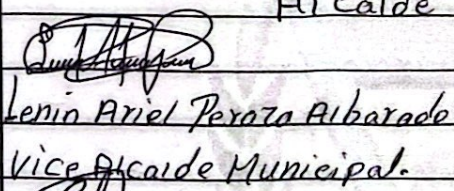 Alcalde
Lenin Ariel Peraza Albarado
Vice Alcalde Municipal.